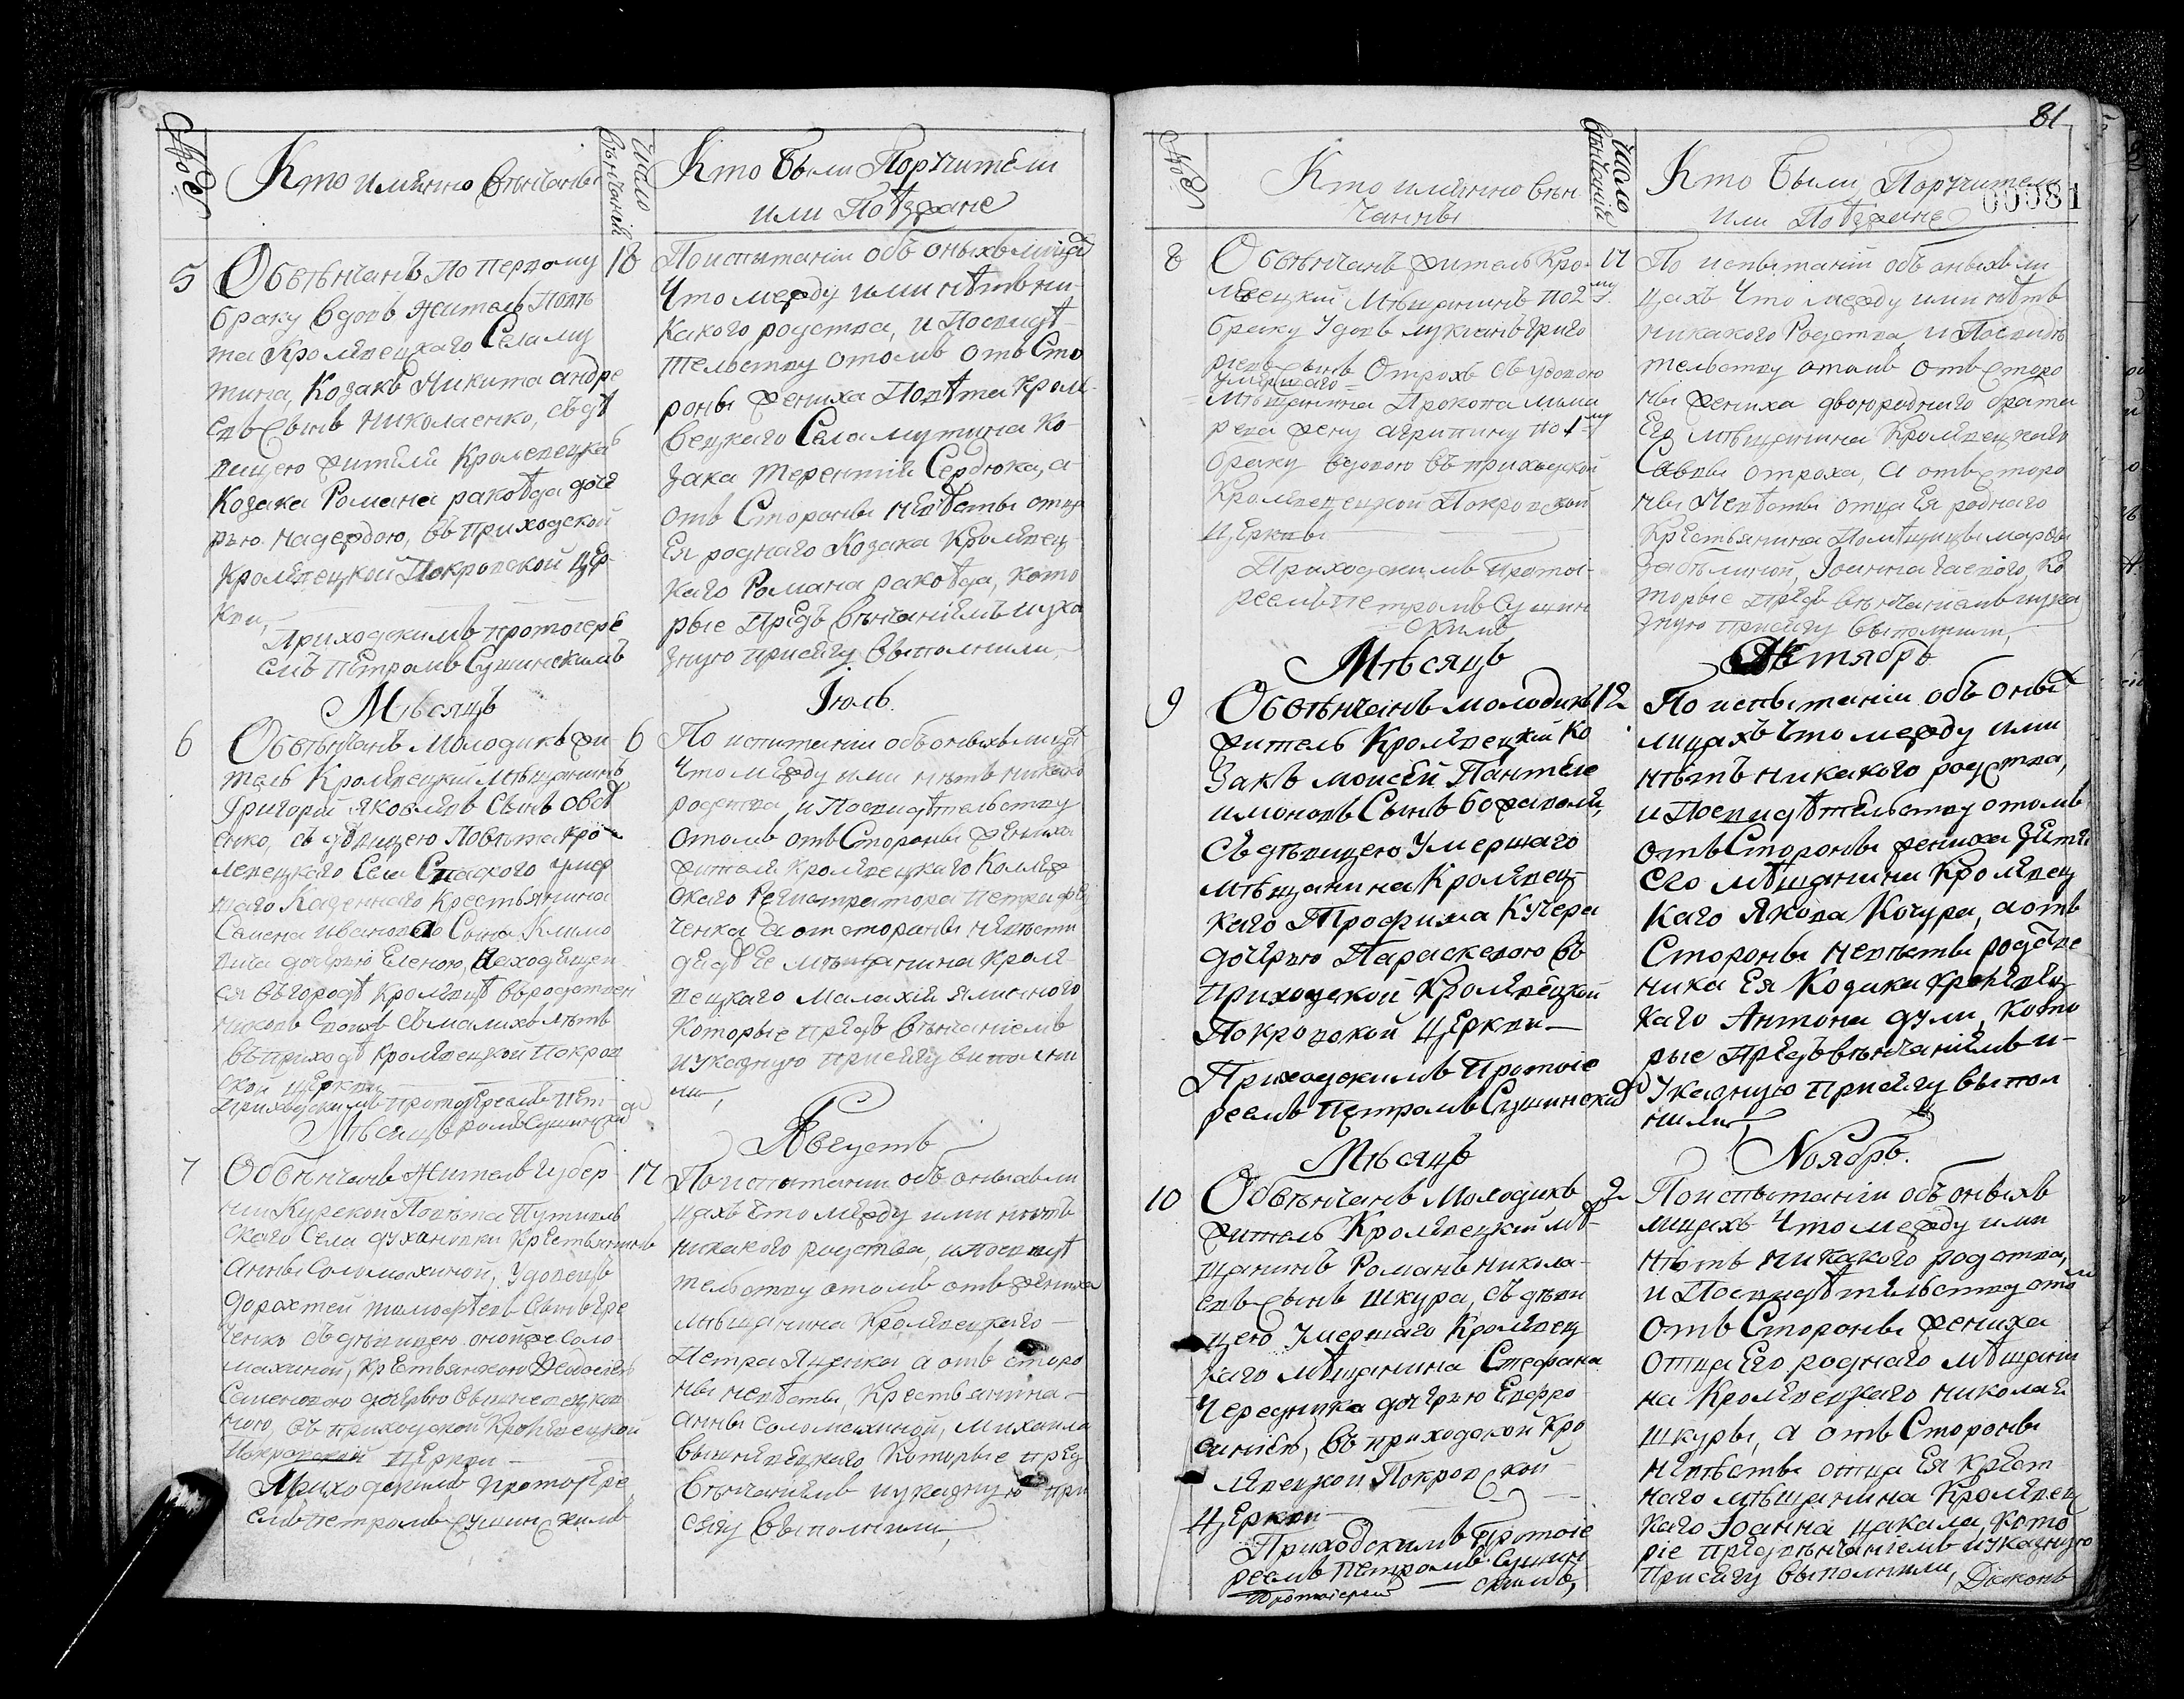 Числo венчаній
Кто имянно венчаны
Кто были Поручители
или Поѣзжане
5
Обвѣнчанъ по первому
браку вдовъ житель Повѣ
та Кролѣвецкаго Села Му
тина, Козакъ Никита Андре
евъ сынъ Николаенко, съ дѣ
вицею жителя Кролевецкаго
Козака Романа Раковѣда доче
рью Надеждою, въ приходской
Кролѣвецкой Покровской Цер
кви,
Приходскимъ протоиере
емъ Петромъ Сушинскимъ
18
По испытаніи объ оныхъ лицахъ
Что между ими нѣтъ ни
какого родства, и По свидѣ
тельству о томъ отъ Сто
роны жениха Повѣта Кроле
вецкаго Села Мутина Ко
зака Терентія Сердюка, а
отъ Стороны невѣсты отца
Ея роднаго Козака Кролѣвец
каго Романа Раковѣда, кото
рые Предъ вѣнчаніемъ и ука
зную присягу выполнили
Мѣсяцъ
Іюль.
6
Обвѣнчанъ Молодикъ жи
тель Кролѣвецкій мѣщанинъ
Григорій Яковлевъ Сынъ Овсѣ
енко, съ дѣвицею Повѣта Кро
левецкаго Села Спаского умер
шаго Казеннаго Крестьянина
Семена Иванова Сына Климо
вича дочерью Еленою, находящеи
ся въ городѣ Кролѣвцѣ въ родствен
никовъ своихъ съ малихъ лѣтъ
въ приходѣ Кролѣвецкой Покров
ской Церкви
Приходскимъ Протоіереемъ Пет
ромъ Сушинскимъ
6
По испитаніи объ оныхъ лицахъ
Что между ими нѣтъ никако
родства, и По свидѣтельству
о томъ отъ Стороны жениха
жителя Кролѣвецкаго Колеж
скаго Регистратора Петра
ченка а от стороны невѣсти
дяди Ее мѣщанина Кролѣ
вецкаго Малахія Ялинного
Которые предъ вѣнчаніемъ
и указную присягу виполни
ли,
Мѣсяцъ
Августъ
7
Обвѣнчанъ Житель Губер
ніи Курской Повѣта Путивль
скаго Села Духановки Крестьянинъ
Анны Соломахиной, Удовецъ
Дорофтей Тимофѣевъ Сынъ Гре
ченко съ дѣвицею оной же Соло
махиной, Крестьянкою Федосіею
Семеновою дочерью Вышневецкою
мою, въ приходской Кролѣвецкой
Покровской Церкви
Приходскимъ протоіере
емъ Петромъ Сушинскимъ
17
По испытаніи объ оныхъ ли
цахъ Что между ими нѣтъ
никакого родства, и по свидѣ
тельству о томъ отъ жениха
мѣщанина Кролѣвецкаго
Петра Яценка, а отъ сторо
ны невѣсты, Крестьянина
Анны Соломахиной, Михаила
Вышнѣвецкаго Которые пред
вѣнчаніемъ и указную при
сягу выполнили,
81
00081
Числo венчаній
Кто имянно вѣн
чанны
Кто были Поручители
или Поѣзжане
8
Обвѣнчанъ житель Кро
лѣвецкій Мѣщанинъ по 2му
браку Удовъ Лукіанъ Григо
ріевъ сынъ Отрохъ съ удовою
умершаго
Мѣщанина Прокопа Мила
рева жену Агрипину по 1му
браку вдовою въ приходской
Кролѣвецкой Покровской
Церквы
Приходскимъ протоі
реемъ Петромъ Сушин
скимъ
17
По испытаніи объ оныхъ ли
цахъ Что между ими нѣтъ
никакого Родства, и По свидѣ
тельству о томъ отъ Сторо
ны жениха двоюроднаго брата
Его мѣщанина Кролѣвецкаго
Саввы Отроха, а отъ сторо
ны Невѣсты отца Ея роднаго
Крестьянина Помѣщицы Марфы
Забѣлиной, Іоанна Гаевого, Ко
торые Предъ вѣнчаніемъ и ука
зную присягу выполнили,
Мѣсяцъ
Октябръ
9
Обвѣнчанъ молодикъ
житель Кролѣвецкій Ко
закъ Моисей Пантеле
имоновъ Сынъ
Съ дѣвицею Умершаго
мѣщанина Кролѣвец
каго Трофима Кучера
дочерью Параскевою въ
приходской Кролѣвецкой
Покровской Церкви
Приходскимъ Протоіе
реемъ Петромъ Сушинский
12
По испытаніи объ оныхъ
лицахъ Что между ими
нѣтъ никакого родства,
и По свидѣтельству о томъ
отъ Стороны жениха Зятя
его мѣщанина Кролѣвец
каго Якова Кочура, а отъ
Стороны невѣсты родстве
ника Ея Козака Кролѣвец
каго Антона Дули, Кото
рые Предъ вѣнчаніемъ и
Указную присягу выпол
нили,
Мѣсяцъ
Ноябръ.
10
Обвѣнчанъ Молодикъ
житель Кролѣвецкій мѣ
щанинъ Романъ Никола
евъ сынъ Шкура, съ дѣви
цею Умершаго Кролѣвец
каго мѣщанина Стефана
Чередника дочерью Евфро
синіею, въ приходской Кро
лѣвецкой Покровской
Церкви
Приходскимъ Протоіе
реемъ Петромъ Сушин
скимъ,
Протоіерей
2
По испытаніи объ оныхъ
лицахъ Что между ими
нѣтъ никакого родства,
и По свидѣтельству о томъ
отъ Стороны жениха
отца Его роднаго мѣщани
на Кролѣвецкаго Николая
Шкуры, а отъ Стороны
невѣсты отца Ея Крест
наго мѣщанина Кролѣвец
каго Іоанна Цакала, кото
ріе предъ вѣнчаніемъ и указную
присягу выполнили, Діяконъ